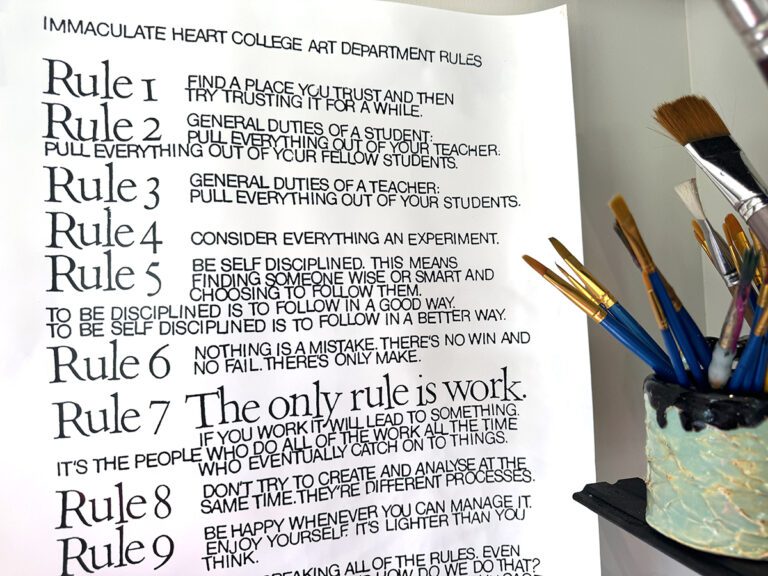 IMMACULATE HEART COLLEGE ART DEPARTMENT RULES
Rule 1 FIND A PLACE YOU TRUST AND THEN
TRY TRUSTING IT FOR A WHILE.
Rule 2 GENERAL DUTIES OF A STUDENT:
PULL EVERYTHING OUT OF YOUR TEACHER.
PULL EVERYTHING OUT OF YOUR FELLOW STUDENTS.
Rule 3 GENERAL DUTIES OF A TEACHER:
PULL EVERYTHING OUT OF YOUR STUDENTS.
Rule 4 CONSIDER EVERYTHING AN EXPERIMENT.
Rule 5 BE SELF DISCIPLINED. THIS MEANS
FINDING SOMEONE WISE OR SMART AND
CHOOSING TO FOLLOW THEM.
TO BE DISCIPLINED IS TO FOLLOW IN A GOOD WAY.
TO BE SELF DISCIPLINED IS TO FOLLOW IN A BETTER WAY.
Rule 6 NOTHING IS A MISTAKE. THERE'S NO WIN AND
NO FAIL. THERE'S ONLY MAKE.
Rule 7 The only rule is work.
IF YOU WORK IT WILL LEAD TO SOMETHING.
IT'S THE PEOPLE WHO DO ALL OF THE WORK ALL THE TIME
WHO EVENTUALLY CATCH ON TO THINGS.
Rule 8 DON'T TRY TO CREATE AND ANALYSE AT THE
SAME TIME. THEY'RE DIFFERENT PROCESSES.
Rule 9 BE HAPPY WHENEVER YOU CAN MANAGE IT.
ENJOY YOURSELF. IT'S LIGHTER THAN YOU
THINK.
BREAKING ALL OF THE RULES. EVEN
HOW DO WE DO THAT?